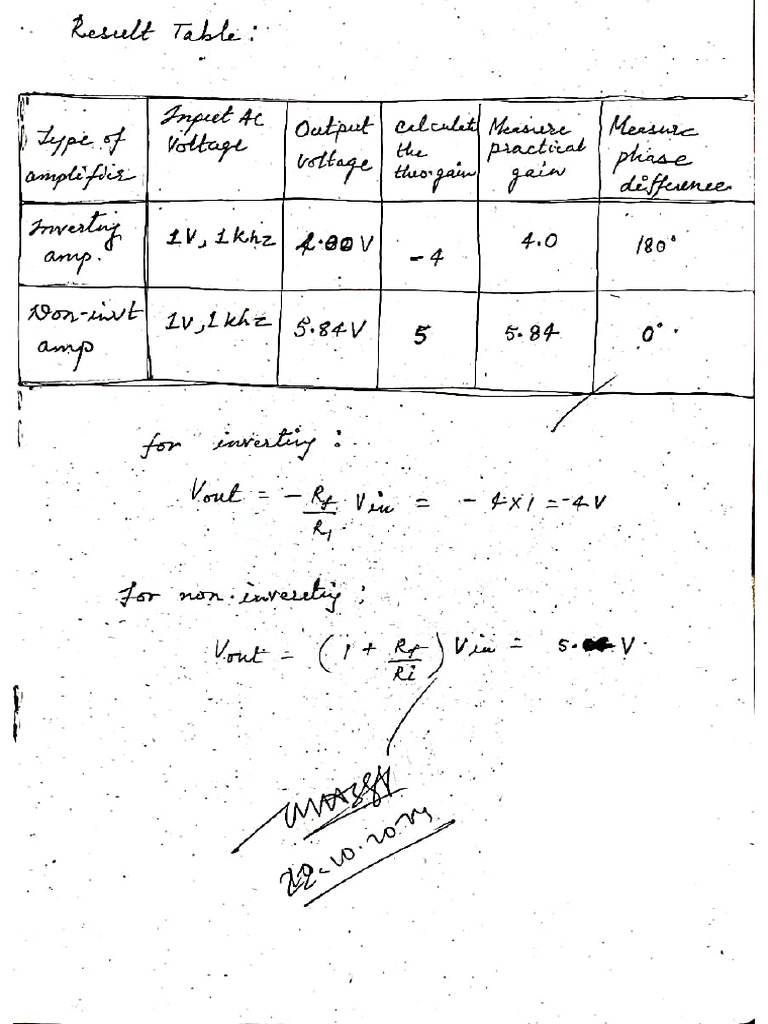 Result Table:
Type of amplifier | Input AC Voltage | Output Voltage | Calculate the theo. gain | Measure practical gain | Measure phase difference
Inverting amp. | 1V, 1khz | 4.00V | -4 | 4.0 | 180°
Non-invt amp | 1v, 1khz | 5.84V | 5 | 5.84 | 0°
for inverting:
Vout = - Rf/R1 Vin = - 4×1 = -4V
For non-inverting:
Vout = (1 + Rf/Ri) Vin = 5. V